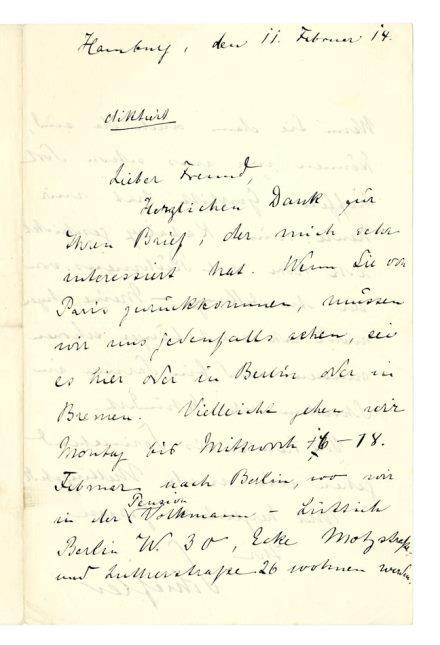 Hamburg, den 11. Februar 14.
diktiert
Lieber Freund,
Herzlichen Dank für
Ihren Brief, der mich sehr
interessiert hat. Wenn Sie von
Paris zurückkommen, müssen
wir uns jedenfalls sehen, sei
es hier oder in Berlin oder in
Bremen. Vielleicht gehen wir
Montag bis Mittwoch 16-18.
Februar nach Berlin, wo wir
Pension
in der Volkmann - Lüttich
Berlin W. 30, Ecke Motzstraße
und Lutherstraße 26 wohnen werden.